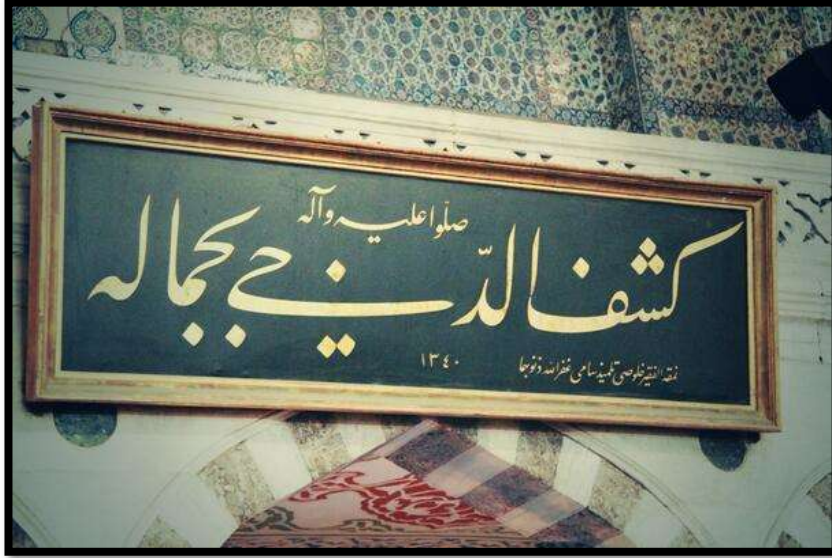 صلّوا عليه وآله
كشف الدّجى بجماله
١٣٤٠
نمقه الفقير خلوصي تلميذ سامي غفر الله ذنوبهما